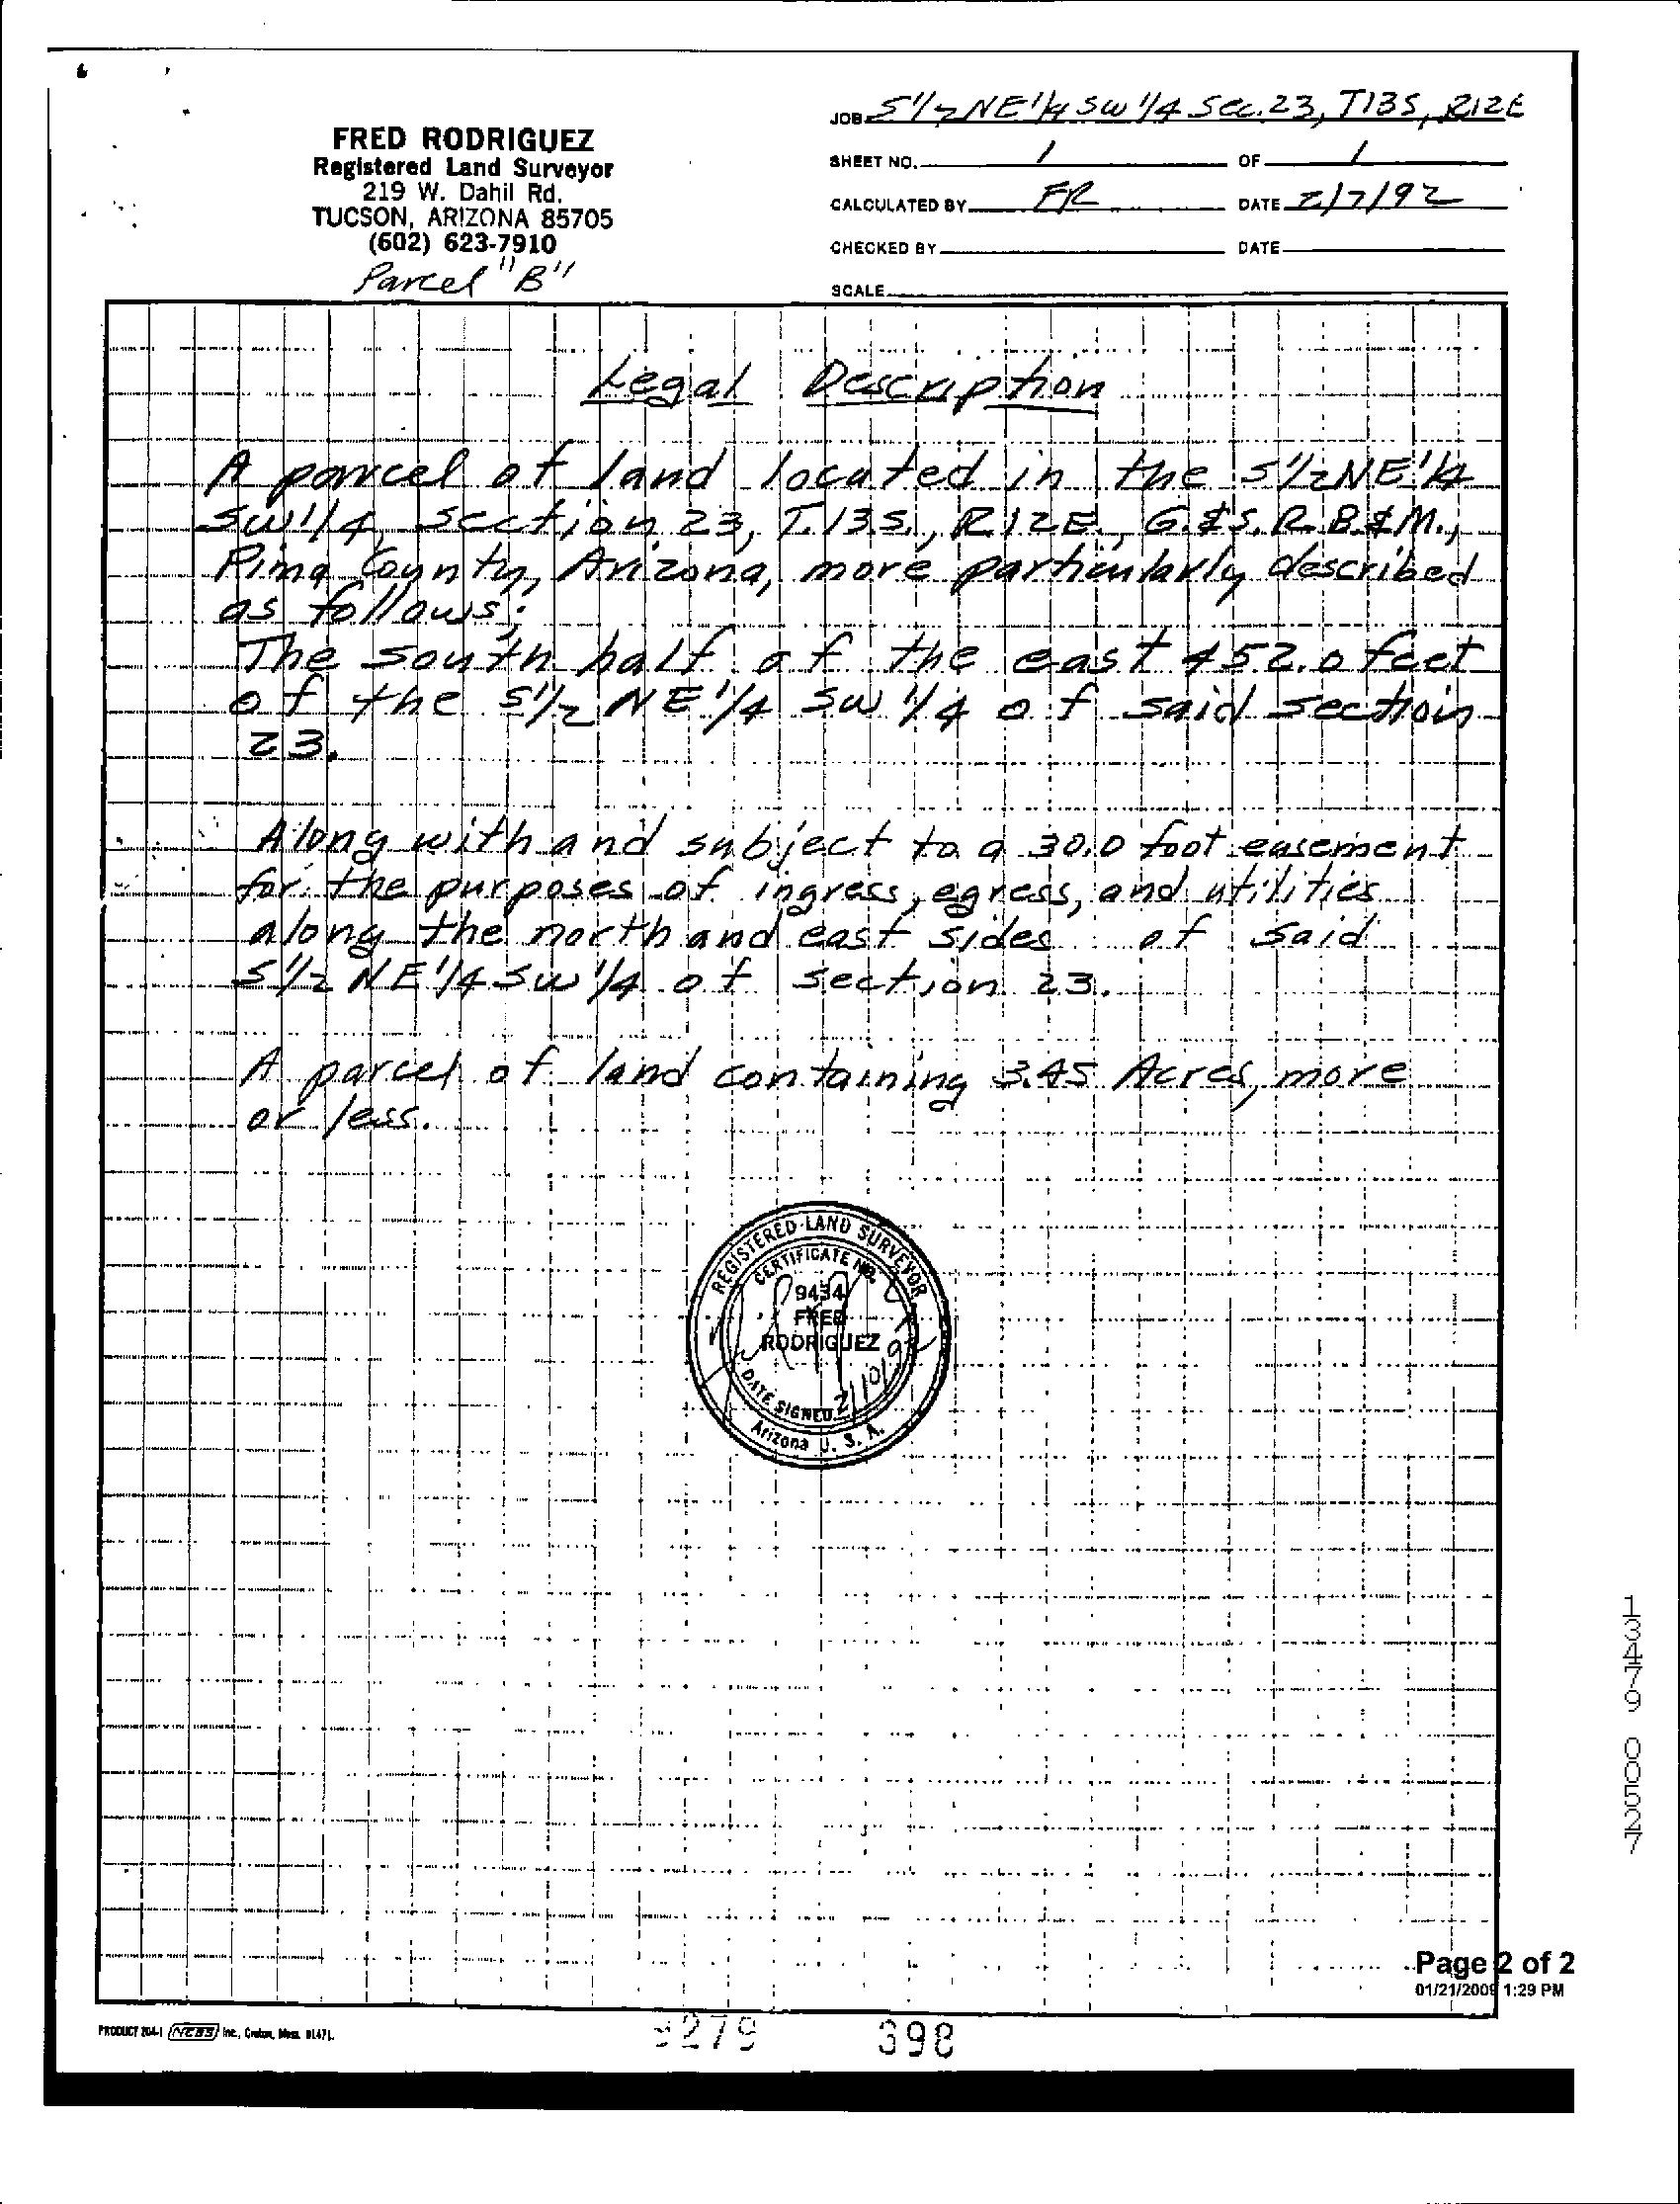 FRED RODRIGUEZ
Registered Land Surveyor
219 W. Dahil Rd.
TUCSON, ARIZONA 85705
(602) 623-7910
Parcel "B"
JOB S 1/2 NE 1/4 SW 1/4 Sec. 23, T13S, R12E
SHEET NO. 1 OF 1
CALCULATED BY FR DATE 2/7/92
CHECKED BY DATE
SCALE
Legal Description
A parcel of land located in the S 1/2 NE 1/4
SW 1/4, section 23, T.13S., R12E., G.&S.R.B.&M.,
Pima County, Arizona, more particularly described
as follows;
The south half of the east 452.0 feet
of the S 1/2 NE 1/4 SW 1/4 of said section
23.
Along with and subject to a 30.0 foot easement
for the purposes of ingress, egress, and utilities
along the north and east sides of said
S 1/2 NE 1/4 SW 1/4 of section 23.
A parcel of land containing 3.45 Acres, more
or less.
REGISTERED LAND SURVEYOR
CERTIFICATE NO.
9434
FRED
RODRIGUEZ
DATE SIGNED 2/10/92
Arizona U. S. A.
13479 00527
Page 2 of 2
01/21/2009 1:29 PM
PRODUCT 204-1 NEBS Inc., Groton, Mass. 01471.
9279 398